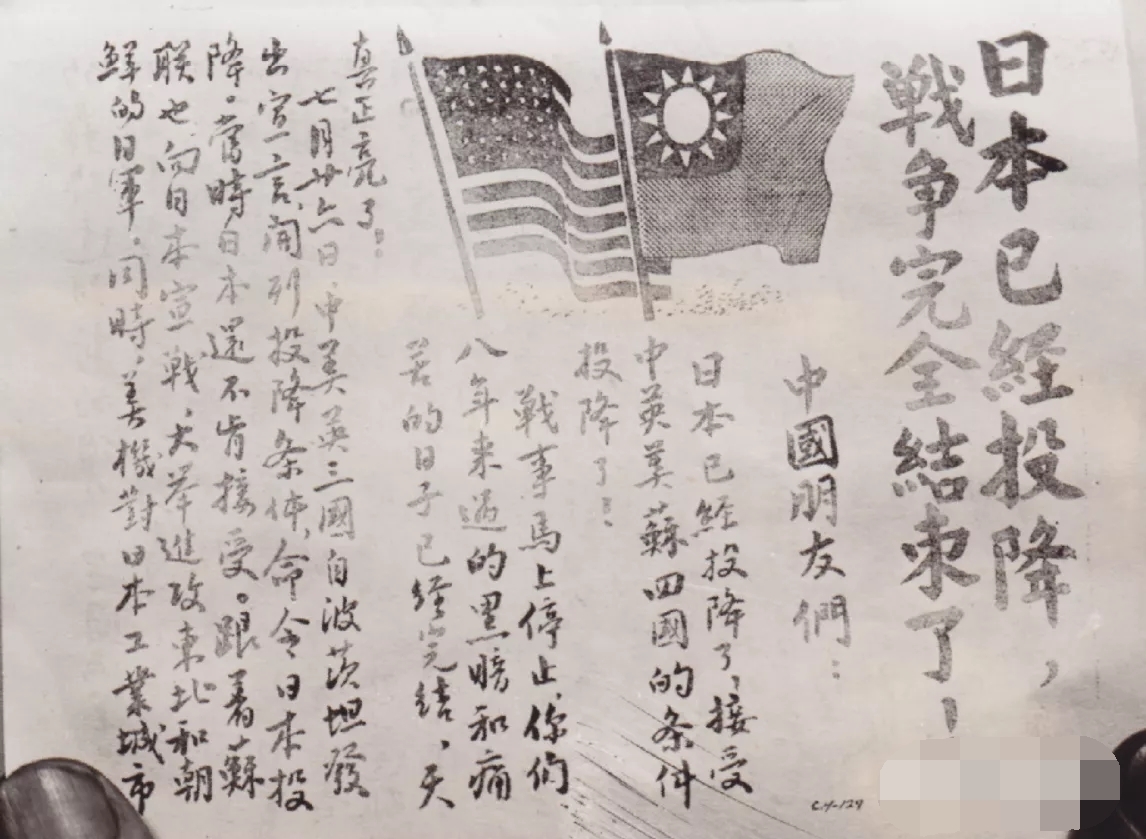 日本已经投降，
战争完全結束了！
中國朋友們：
日本已經投降了，接受
中英美蘇四國的条件
投降了！
戰事馬上停止，你們
八年来過的黑暗和痛
苦的日子已經完結，天
真正亮了！
七月廿六日，中美英三國自波茨坦發
出宣言，開列投降条件，命令日本投
降。當時日本還不肯接受。跟着蘇
联也向日本宣戰，大举進攻東北和朝
鮮的日軍，同時，美機對日本工業城市
CH-129